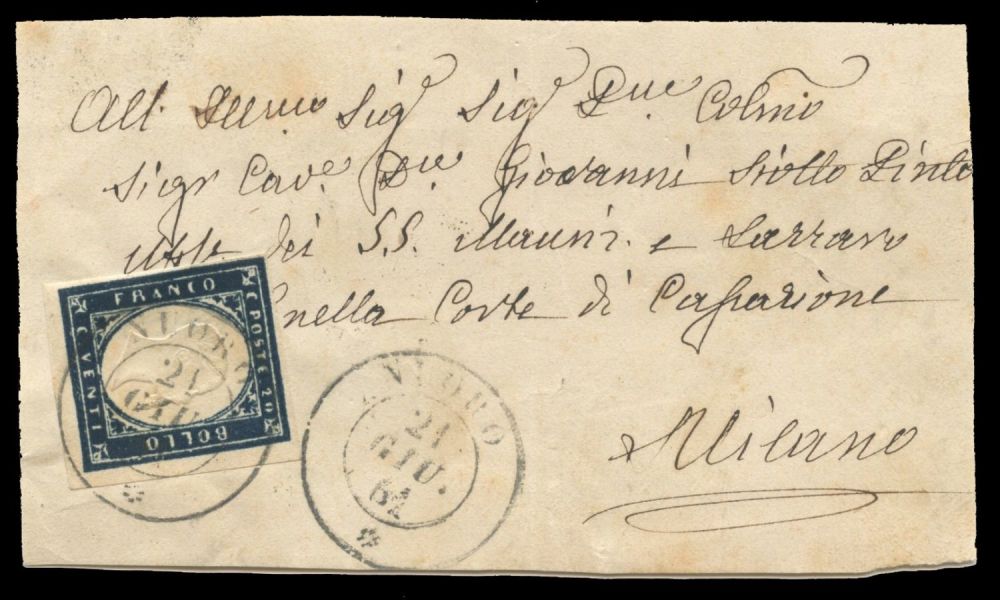 All. Illmo Sig Sig Dne Colmo
Sigr Cave Dne Giovanni Siotto Pinto
Uffle dei S.S. Mauriz. e Lazzaro
nella Corte di Cassazione
Milano
FRANCO
C. POSTE 20
BOLLO
C. VENTI
NUORO
21
GIU.
NUORO
21
GIU.
61